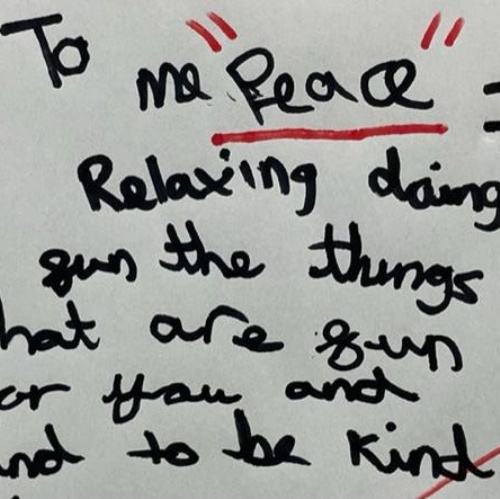 To
me "Peace" =
Relaxing doing
fun the things
hat are fun
or you and
nd to be kind